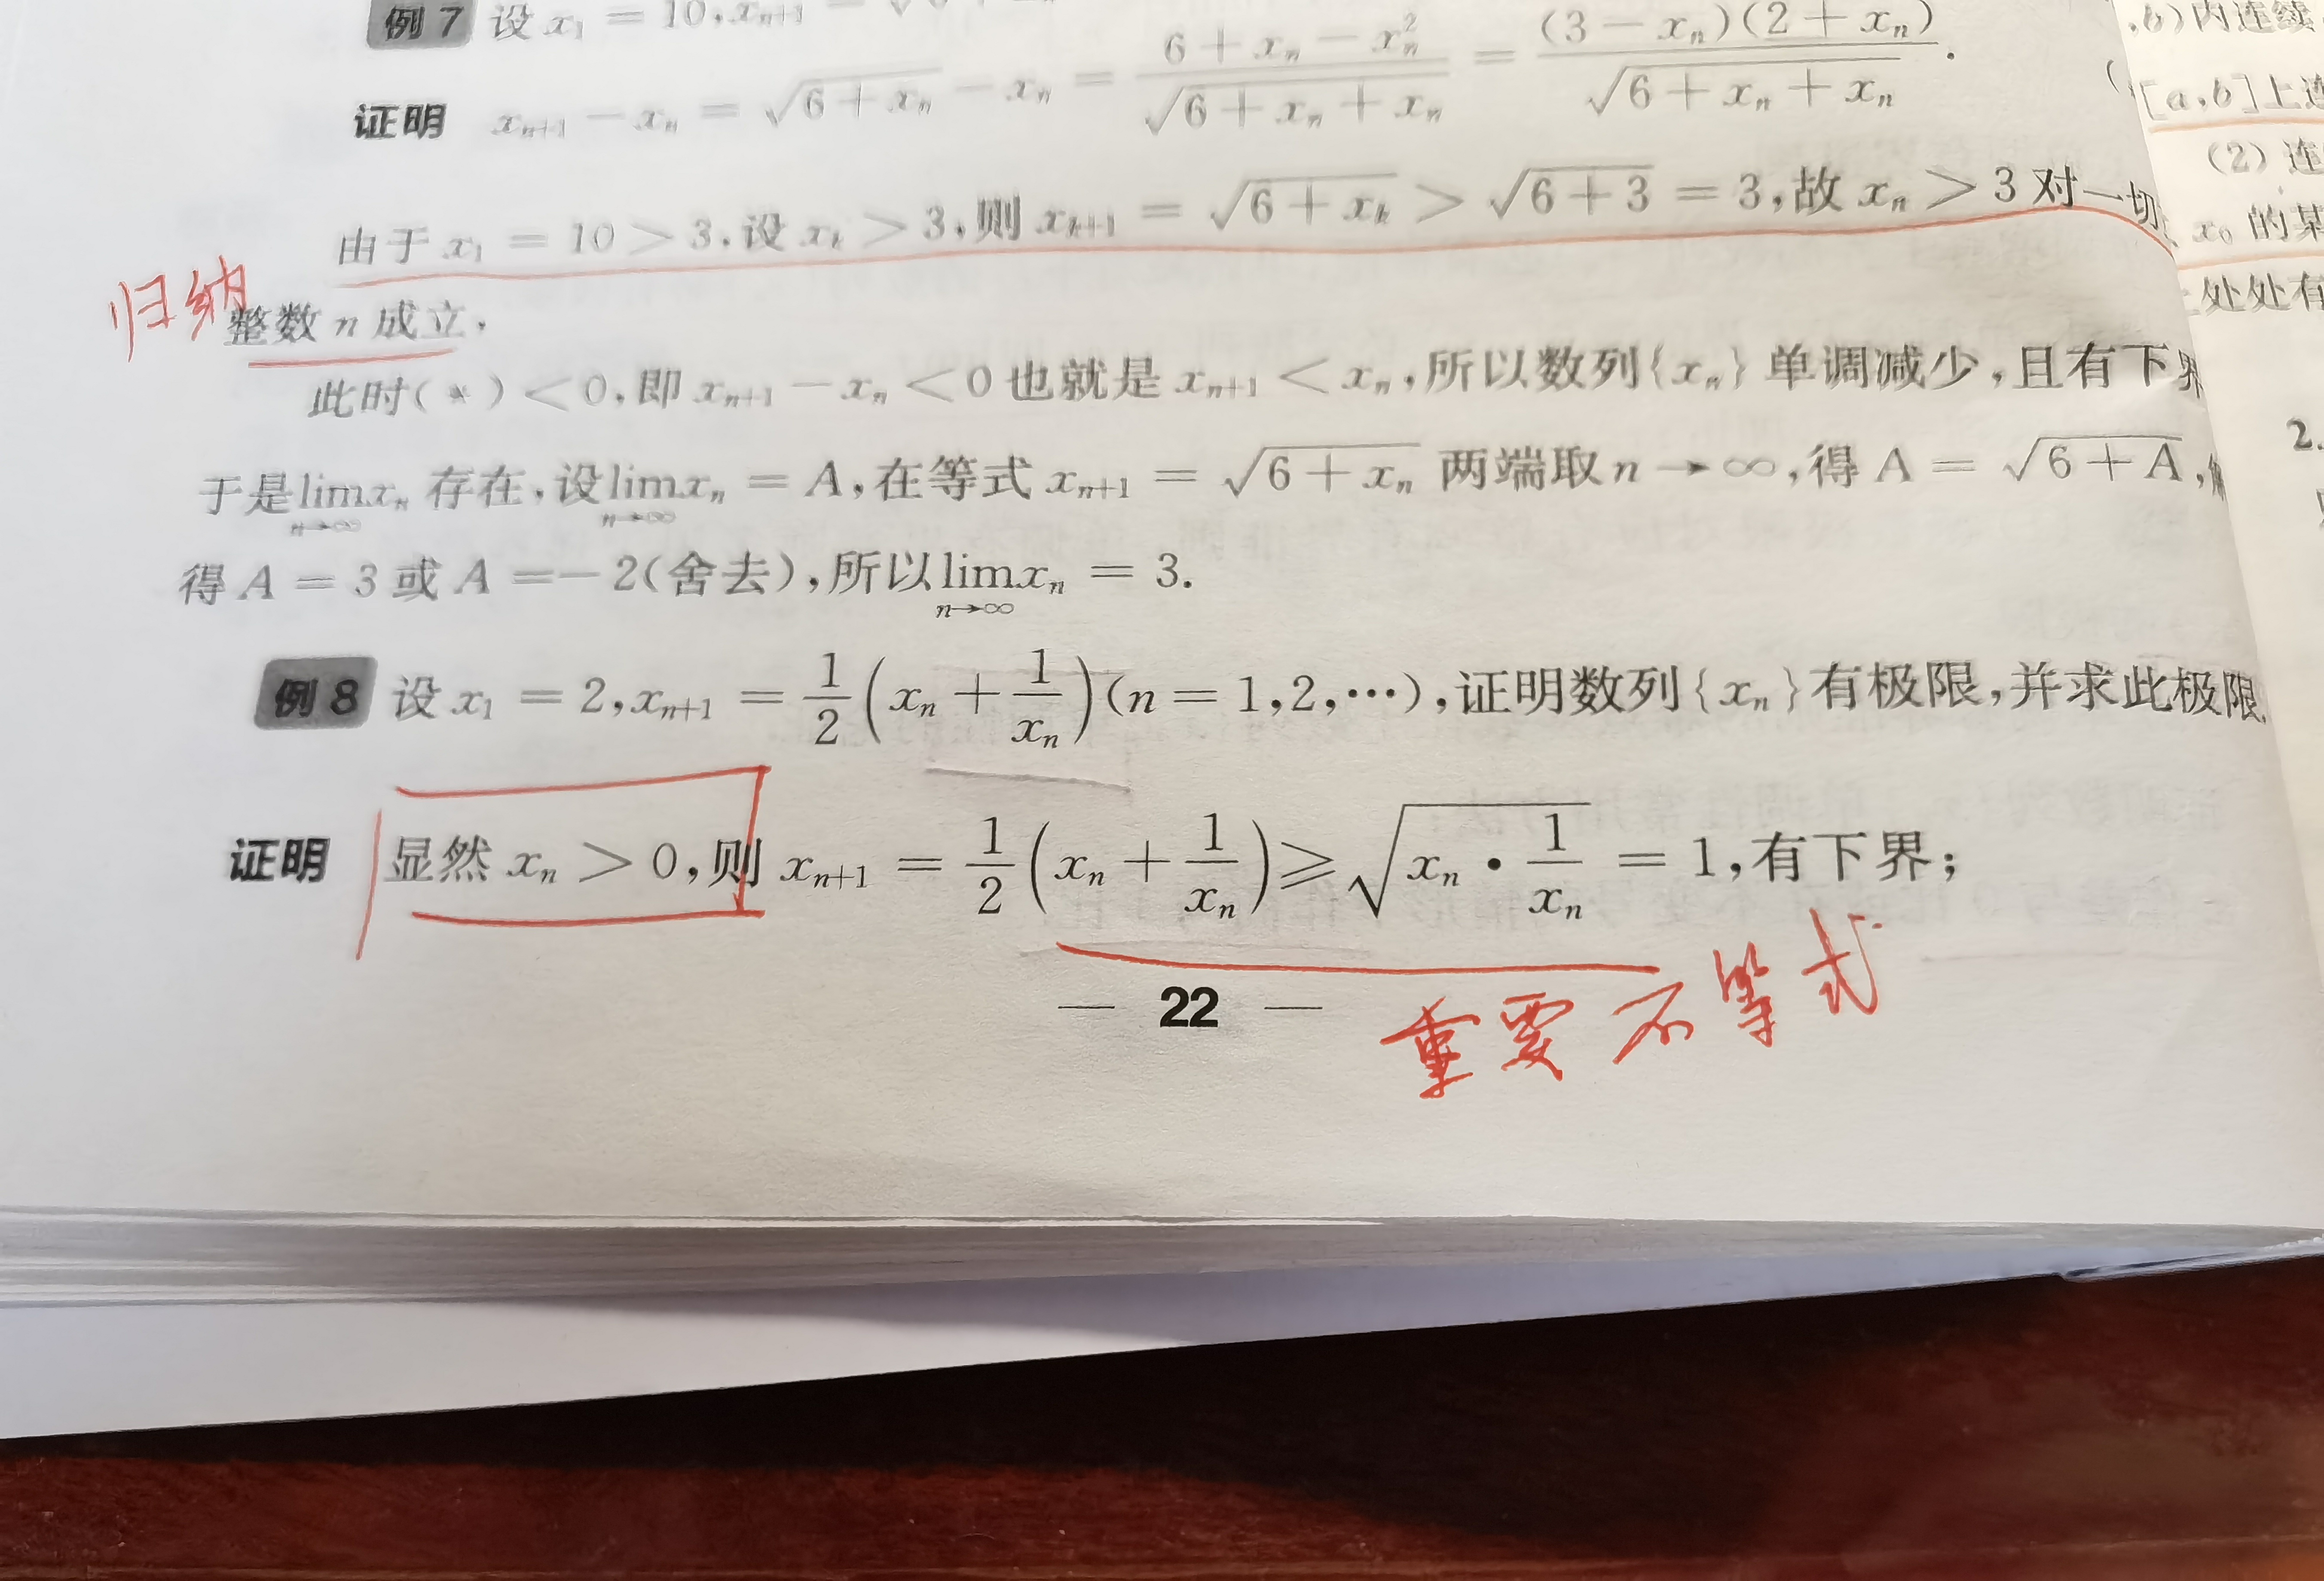 例7 设 x₁ = 10, xₙ₊₁ =
证明 xₙ₊₁ − xₙ = √(6 + xₙ) − xₙ = (6 + xₙ − xₙ²)/(√(6 + xₙ) + xₙ) = ((3 − xₙ)(2 + xₙ))/√(6 + xₙ + xₙ).
由于 x₁ = 10 > 3, 设 xₖ > 3, 则 xₖ₊₁ = √(6 + xₖ) > √(6 + 3) = 3, 故 xₙ > 3 对一切
归纳
整数 n 成立,
此时(*) < 0, 即 xₙ₊₁ − xₙ < 0 也就是 xₙ₊₁ < xₙ, 所以数列{xₙ}单调减少, 且有下界
于是 lim(n→∞) xₙ 存在, 设 lim(n→∞) xₙ = A, 在等式 xₙ₊₁ = √(6 + xₙ) 两端取 n → ∞, 得 A = √(6 + A),
得 A = 3 或 A = −2(舍去), 所以 lim(n→∞) xₙ = 3.
例8 设 x₁ = 2, xₙ₊₁ = 1/2(xₙ + 1/xₙ)(n = 1,2,⋯), 证明数列{xₙ}有极限, 并求此极限
证明 显然 xₙ > 0, 则 xₙ₊₁ = 1/2(xₙ + 1/xₙ) ⩾ √(xₙ · 1/xₙ) = 1, 有下界;
重要不等式
— 22 —
,b)内连续
[a,b]上连
(2) 连
x₀ 的某
处处有
2.